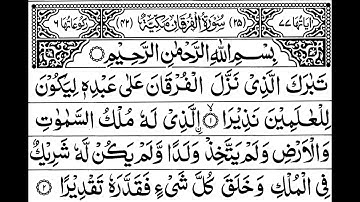 اٰیَاتُهَا ٧٧ (٢٥) سُوْرَةُ الْفُرْقَانِ مَكِّيَّةٌ (٤٢) رُكُوْعَاتُهَا ٦
بِسْمِ اللّٰهِ الرَّحْمٰنِ الرَّحِيْمِ
تَبٰرَكَ الَّذِیْ نَزَّلَ الْفُرْقَانَ عَلٰى عَبْدِهٖ لِيَكُوْنَ
لِلْعٰلَمِيْنَ نَذِيْرَا ۙ ١ الَّذِیْ لَهٗ مُلْكُ السَّمٰوٰتِ
وَالْاَرْضِ وَلَمْ يَتَّخِذْ وَلَدًا وَّلَمْ يَكُنْ لَّهٗ شَرِيْكٌ
فِی الْمُلْكِ وَخَلَقَ كُلَّ شَیْءٍ فَقَدَّرَهٗ تَقْدِيْرًا ٢